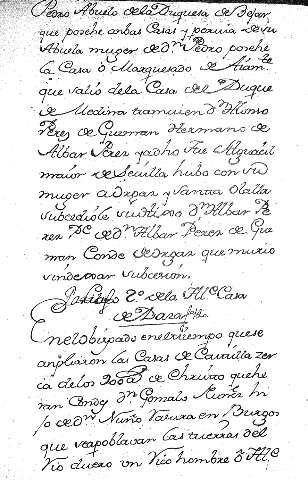 Pedro Abuelo de la Duquesa de Bejar,
que porche anbas Casas y porvia de su
Abuela muger de dⁿ Pedro porche
la Casa o Marquesado de
que salio dela Casa del Duque
de Medina en dⁿ Alonso
Perez de Guzman Hermano de
Albar Perez yadho fue Alguacil
maior de Sevilla hubo con su
muger a Orgaz y Santa Olalla
subcediole su hijo dⁿ Albar Pe
rez P.e de dⁿ Albar Perez de Guz
man Conde de Orgaz que murio
sin dexar subcesion.
2º dela Ill.e Casa
de
En el obispado en el tiempo que se
anpliaron las Casas de Castilla zer
ca delos 900 a de Christo quehe
ran Conde dⁿ Gonzalo Nuñez hi
jo de dⁿ Nuño Rasura en Burgos
que se apoblavan las tierras del
rio duero un Rico hombre